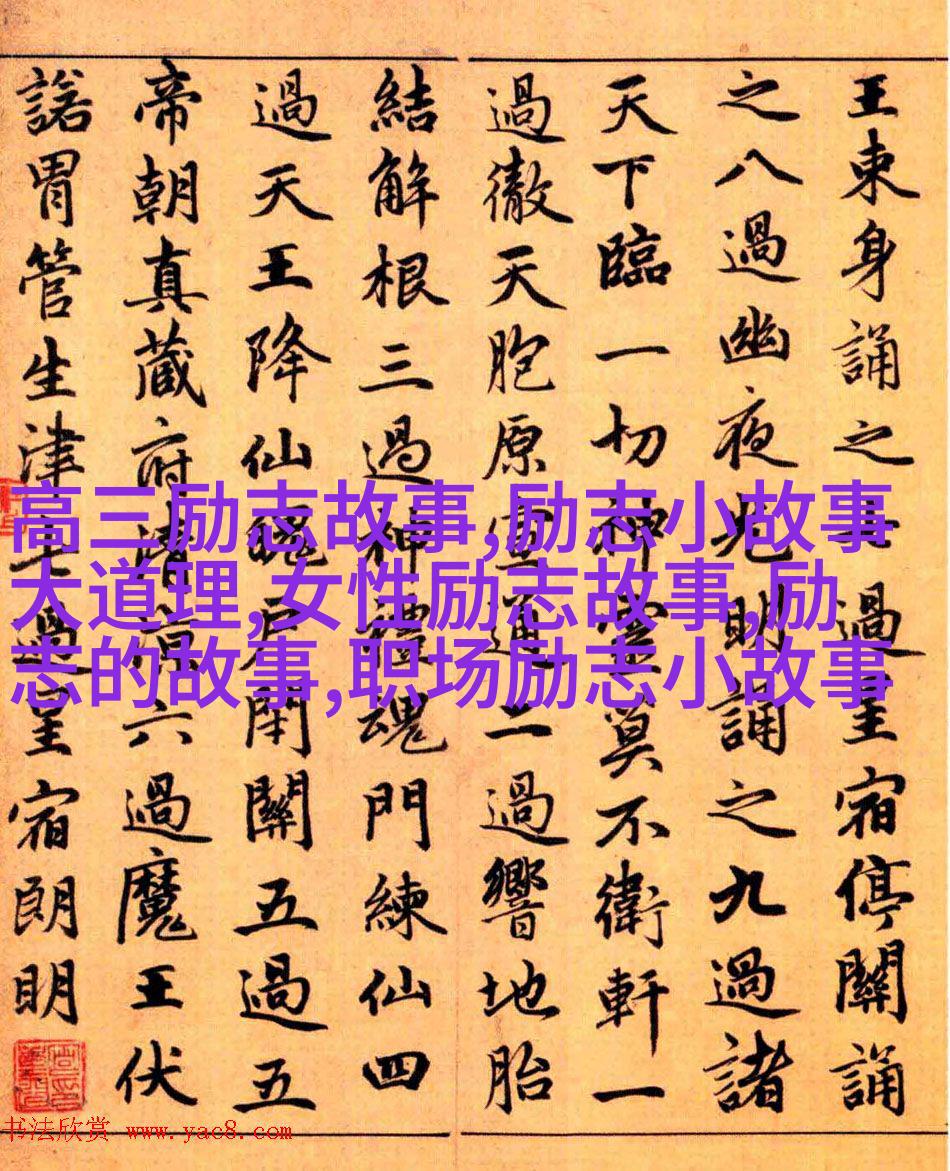 王東身誦之七過星宿停關誦
之八過幽夜光明誦之九過諸
天下臨一切神靈莫不衛軒一
過徹天胞原宣通二過響地胎
結解根三過神禮魂門練仙四
過天王降仙魄戶閉關五過五
帝朝真藏府清涼六過魔王伏
諾胃管生津七過星宿朗明
高三励志故事,励志小故事
大道理,女性励志故事,励
志的故事,职场励志小故事
书法欣赏 www.yac8.com